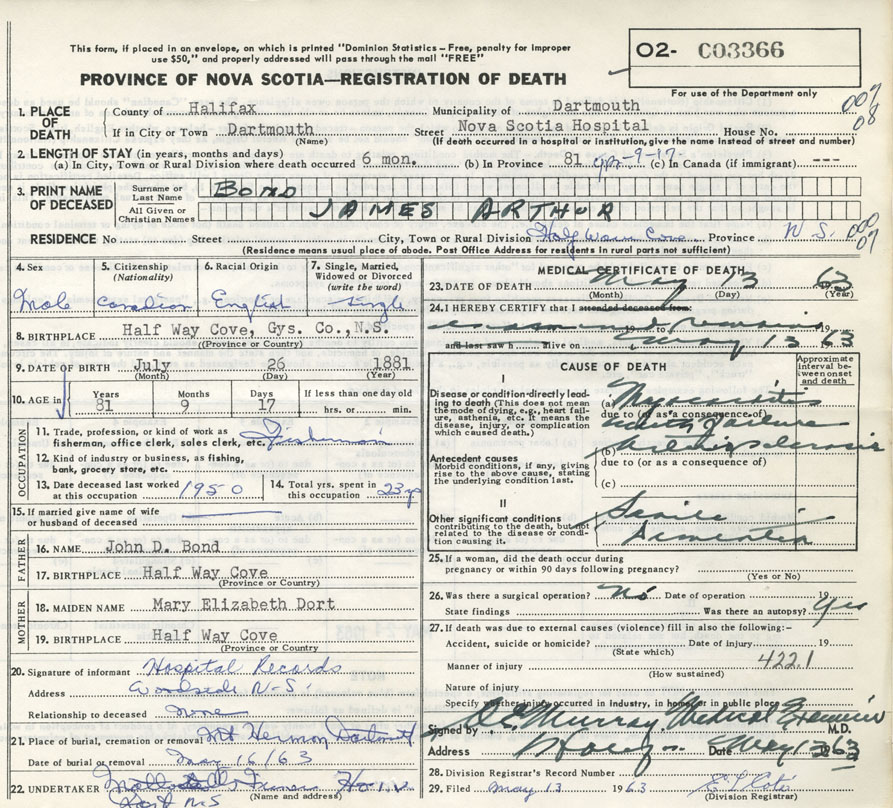 This form, if placed in an envelope, on which is printed "Dominion Statistics - Free, penalty for improper
use $50," and properly addressed will pass through the mail "FREE"
O2- C03366
PROVINCE OF NOVA SCOTIA—REGISTRATION OF DEATH
For use of the Department only
1. PLACE OF DEATH
County of Halifax Municipality of Dartmouth
If in City or Town Dartmouth Street Nova Scotia Hospital House No.
(Name) (If death occurred in a hospital or institution, give the name instead of street and number)
007
08
2. LENGTH OF STAY (in years, months and days)
(a) In City, Town or Rural Division where death occurred 6 mon. (b) In Province 81 yrs-9-17- (c) In Canada (if immigrant) ---
3. PRINT NAME OF DECEASED
Surname or Last Name BOND
All Given or Christian Names JAMES ARTHUR
RESIDENCE No Street City, Town or Rural Division Half Way Cove Province N S.
(Residence means usual place of abode. Post Office Address for residents in rural parts not sufficient)
000
07
4. Sex Male
5. Citizenship (Nationality) Canadian
6. Racial Origin English
7. Single, Married, Widowed or Divorced (write the word) Single
8. BIRTHPLACE Half Way Cove, Gys. Co., N.S.
(Province or Country)
9. DATE OF BIRTH July 26 1881
(Month) (Day) (Year)
10. AGE in Years Months Days If less than one day old
81 9 17 hrs. or min.
OCCUPATION
11. Trade, profession, or kind of work as
fisherman, office clerk, sales clerk, etc. Fisherman
12. Kind of industry or business, as fishing,
bank, grocery store, etc.
13. Date deceased last worked at this occupation 1950
14. Total yrs. spent in this occupation 23 yr
15. If married give name of wife
or husband of deceased
FATHER
16. NAME John D. Bond
17. BIRTHPLACE Half Way Cove
(Province or Country)
MOTHER
18. MAIDEN NAME Mary Elizabeth Dort
19. BIRTHPLACE Half Way Cove
(Province or Country)
20. Signature of informant Hospital Records
Address Woodside N-S.
Relationship to deceased none
21. Place of burial, cremation or removal Mt Hermon Dartmouth
Date of burial or removal May 16/63
22. UNDERTAKER
(Name and address)
MEDICAL CERTIFICATE OF DEATH
23. DATE OF DEATH May 13 63
(Month) (Day) (Year)
24. I HEREBY CERTIFY that I attended deceased from:
examined remains
19 to 19
and last saw h alive on May 13 63
CAUSE OF DEATH
Approximate interval between onset and death
I
Disease or condition directly leading to death (This does not mean the mode of dying, e.g., heart failure, asthenia, etc. It means the disease, injury, or complication which caused death.)
(a) Myocarditis
due to (or as a consequence of)
heart failure
Antecedent causes
Morbid conditions, if any, giving rise to the above cause, stating the underlying condition last.
(b) Arteriosclerosis
due to (or as a consequence of)
(c)
II
Other significant conditions
contributing to the death, but not related to the disease or condition causing it.
Senile
Dementia
25. If a woman, did the death occur during
pregnancy or within 90 days following pregnancy?
(Yes or No)
26. Was there a surgical operation? No Date of operation 19
State findings Was there an autopsy? Yes
27. If death was due to external causes (violence) fill in also the following:-
Accident, suicide or homicide? Date of injury 19
(State which)
Manner of injury 422.1
(How sustained)
Nature of injury
Specify whether injury occurred in Industry, in home, or in public place
Signed by Murray Medical Examiner M.D.
Address Date May 13 63
28. Division Registrar's Record Number
29. Filed May 13 1963
(Division Registrar)